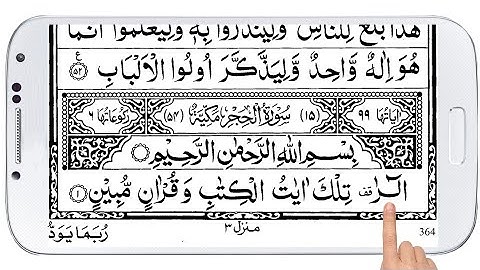 هٰذَا بَلٰغٌ لِّلنَّاسِ وَلِيُنْذَرُوْا بِهٖ وَلِيَعْلَمُوْۤا اَنَّمَا
هُوَ اِلٰهٌ وَّاحِدٌ وَّلِيَذَّكَّرَ اُولُوا الْاَلْبَابِ ﴿۵۲﴾ ع
اٰيَاتُهَا ۹۹ (۱۵) سُوْرَةُ الْحِجْرِ مَكِّيَّةٌ (۵۴) رُكُوْعَاتُهَا ۶
بِسْمِ اللّٰهِ الرَّحْمٰنِ الرَّحِيْمِ
الٓرٰ قف تِلْكَ اٰيٰتُ الْكِتٰبِ وَقُرْاٰنٍ مُّبِيْنٍ ﴿۱﴾
364 منزل ۳ رُبَمَا يَوَدُّ